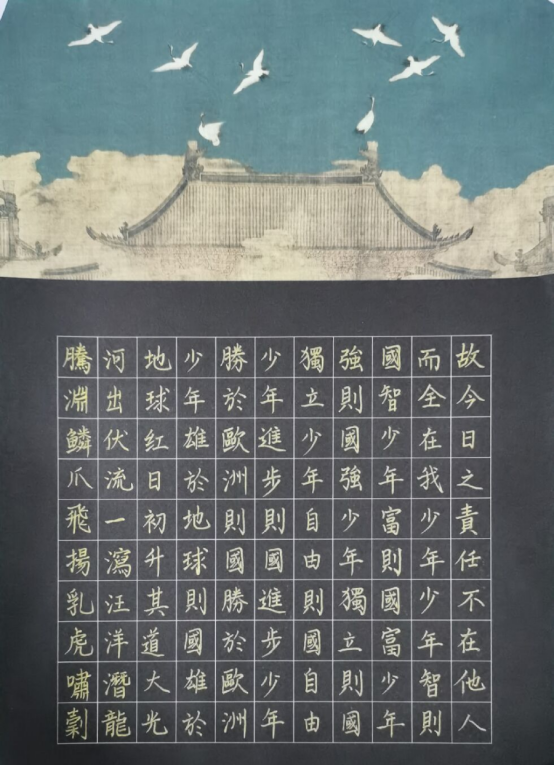 故今日之責任不在他人
而全在我少年少年智則
國智少年富則國富少年
強則國強少年獨立則國
獨立少年自由則國自由
少年進步則國進步少年
勝於歐洲則國勝於歐洲
少年雄於地球則國雄於
地球紅日初升其道大光
河出伏流一瀉汪洋潛龍
騰淵鱗爪飛揚乳虎嘯